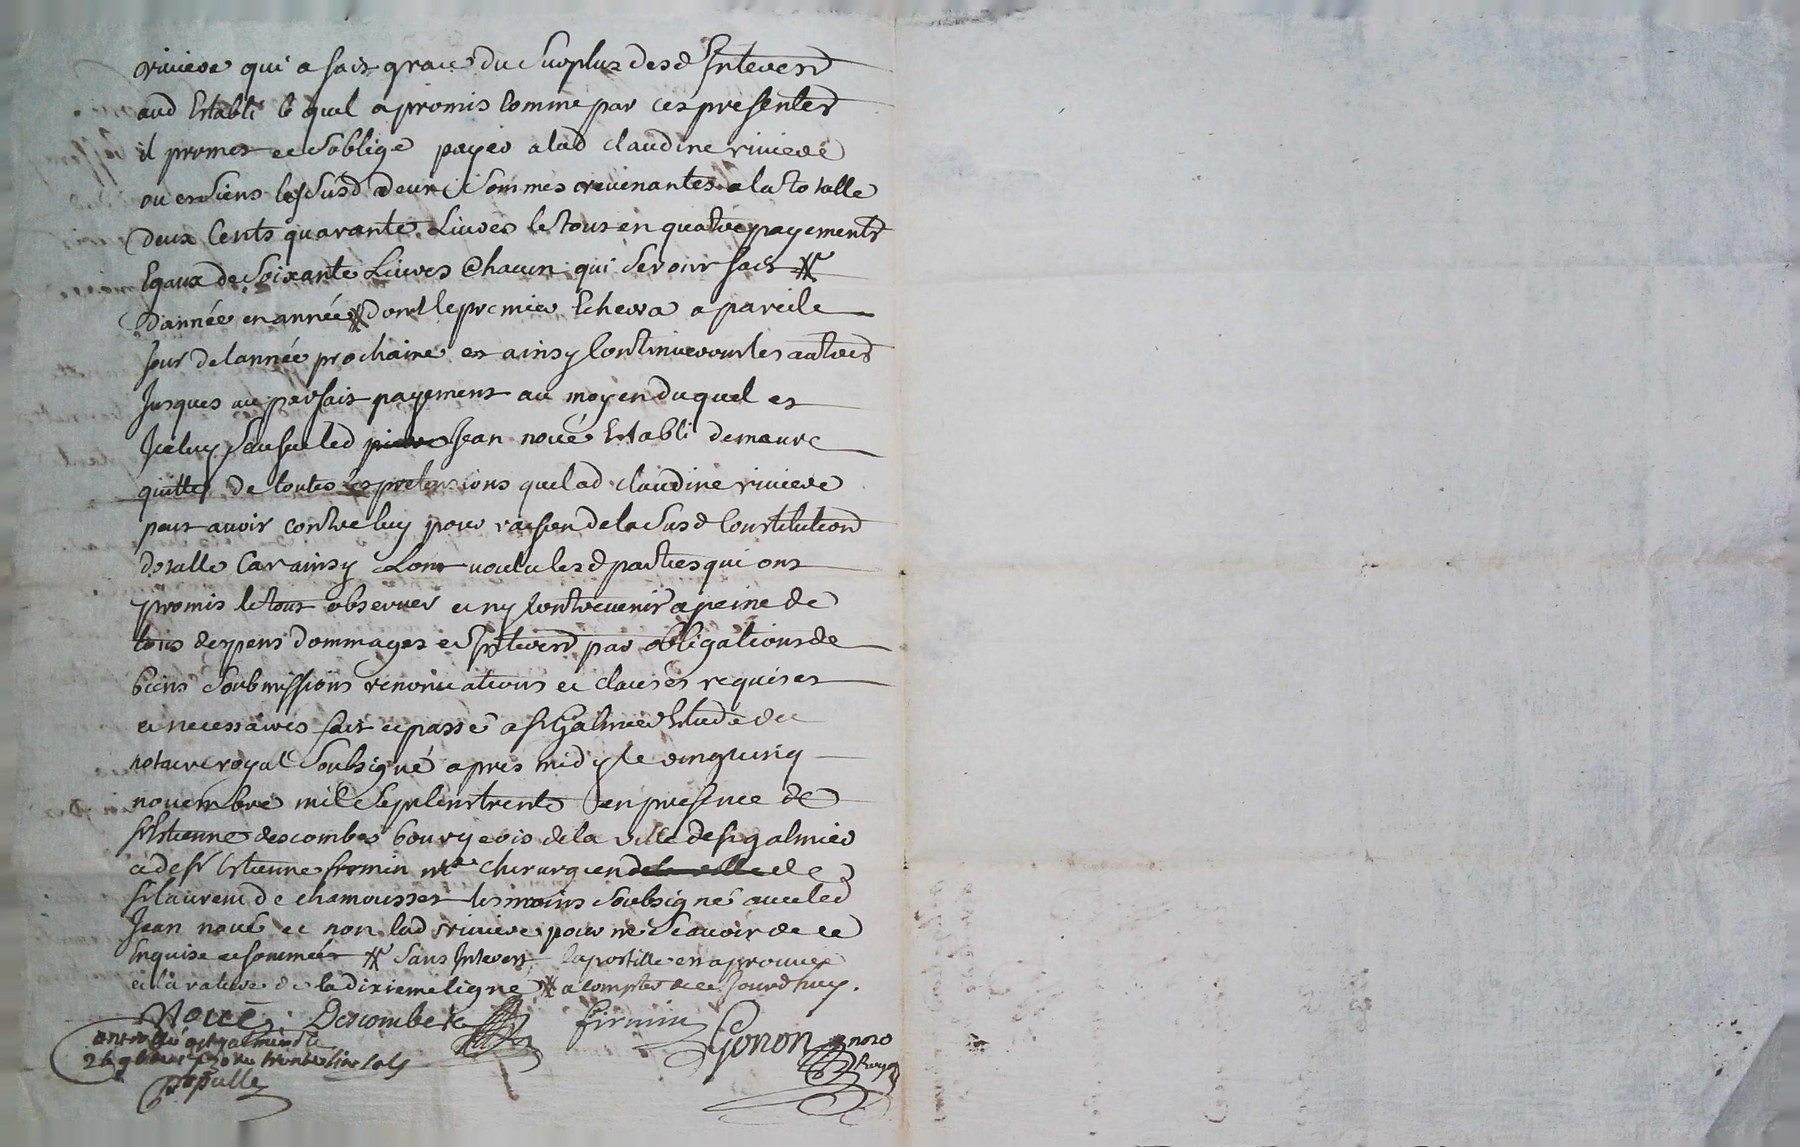 riviere qui a fait grace du surplus desd interest
aud Establi le quel a promis Comme par ces presentes
il promet et soblige payer a lad claudine riviere
ou es siens les susd deux sommes revenantes a la totalle
deux Cents quarante Livres le tout en quatre payements
Egaux de soixante Livres Chacun qui seront fait ⁜
d'année en année ⁜ dont le premier Echerra a pareile
jour de lannée prochaine et ainsy Continueront les autres
Jusques au parfait payement au moyen duquel et
Jceluy led Jean noué Establi demeure
quitte de toutes les pretensions que lad claudine riviere
peut avoir contre luy pour raison de la susd Constitution
dotalle Car ainsy Lont voulu lesd parties qui ont
promis le tout observer et ny Contrevenir a peine de
tous despens dommages et Interest par obligations de
biens soubmissions renonciations et clauses requises
et necessaires fait et passé a st Galmier Etude du
notaire royal soubsigné apres midy le vingt cinq
novembre mil sept cent trente en presence de
sr Estienne descombes bourgeois de la ville de st galmier
et de sr Estienne firmin mtre chirurgien de la ville de
st laurent de chamousset tesmoins soubsigné avec led
Jean noué et non lad riviere pour ne scavoir de ce
Enquise et sommée ⁜ sans Interest lapostille en aprouvée
et la rature de la dixieme ligne ⁜ a compter de ce jourdhuy .
Noué Descombes firmin Gonon no.re
Royal
a st galmier le
26 9bre 1730 Reçu trente cinq sols